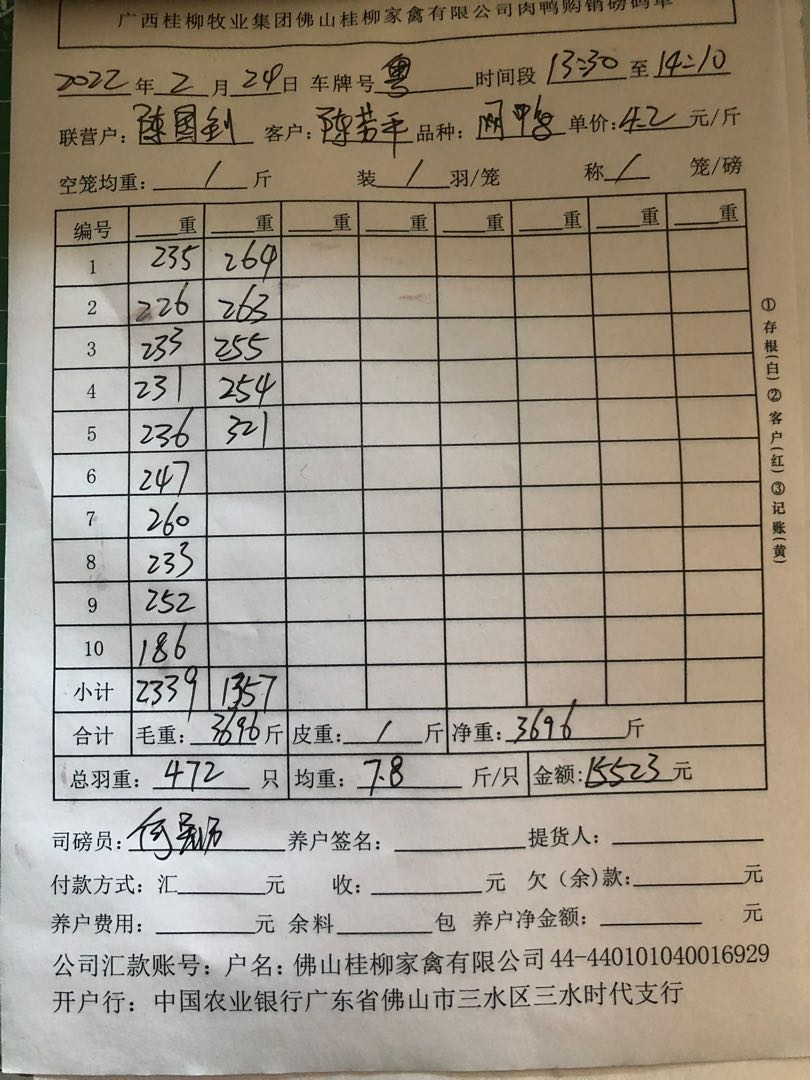 广西桂柳牧业集团佛山桂柳家禽有限公司肉鸭购销磅码单
2022年2月24日 车牌号粤 时间段13:30至14:10
联营户:陈国利 客户:陈芳平 品种: 单价:4.2元/斤
空笼均重:/斤 装/羽/笼 称/笼/磅
编号 重 重 重 重 重 重 重 重
1 235 264
2 226 263
3 233 255
4 231 254
5 236 321
6 247
7 260
8 233
9 252
10 186
小计 2339 1357
合计 毛重:3696斤 皮重:/斤 净重:3696斤
总羽重:472只 均重:7.8斤/只 金额:15523元
司磅员:何 养户签名: 提货人:
付款方式:汇 元 收: 元 欠(余)款: 元
养户费用: 元 余料 包 养户净金额: 元
公司汇款账号:户名:佛山桂柳家禽有限公司44-440101040016929
开户行:中国农业银行广东省佛山市三水区三水时代支行
①存根(白)②客户(红)③记账(黄)